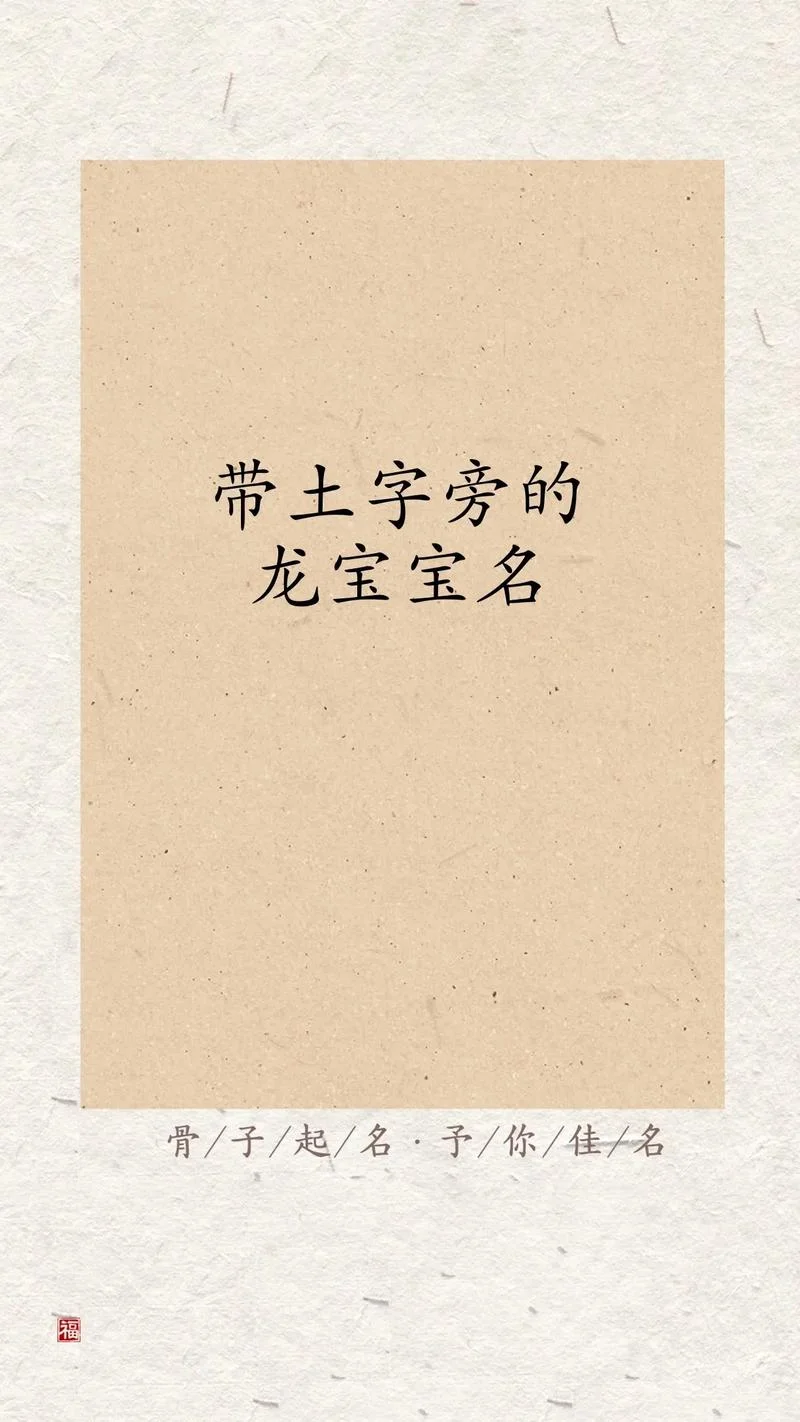 带土字旁的
龙宝宝名
骨/子/起/名·予/你/佳/名
福